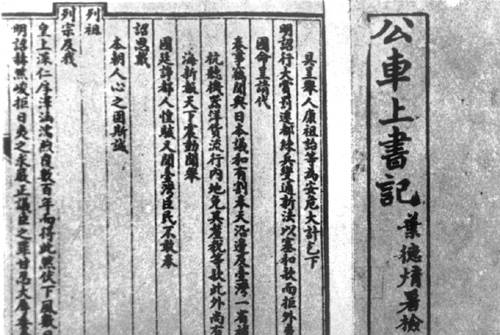 公車上書記
葉德
署檢
具呈舉人康祖詒等為安危大計乞下
明詔行大賞罰遷都練兵變通新法以塞和款而拒外
國命呈請代
奏事竊聞與日本議和有割奉天沿邊及臺灣一省
杭聽機器洋貨流行內地免其釐稅等款此外尚有
海新報天下震動聞舉
國廷諍都人惶駭又聞臺灣臣民不敢奉
詔思戴
本朝人心之固斯誠
列祖
列宗及我
皇上深仁厚澤涵濡煦覆數百年而得此然伏下風數
明詔赫然峻拒日夷之求嚴正議臣之罪甘忍大辱委